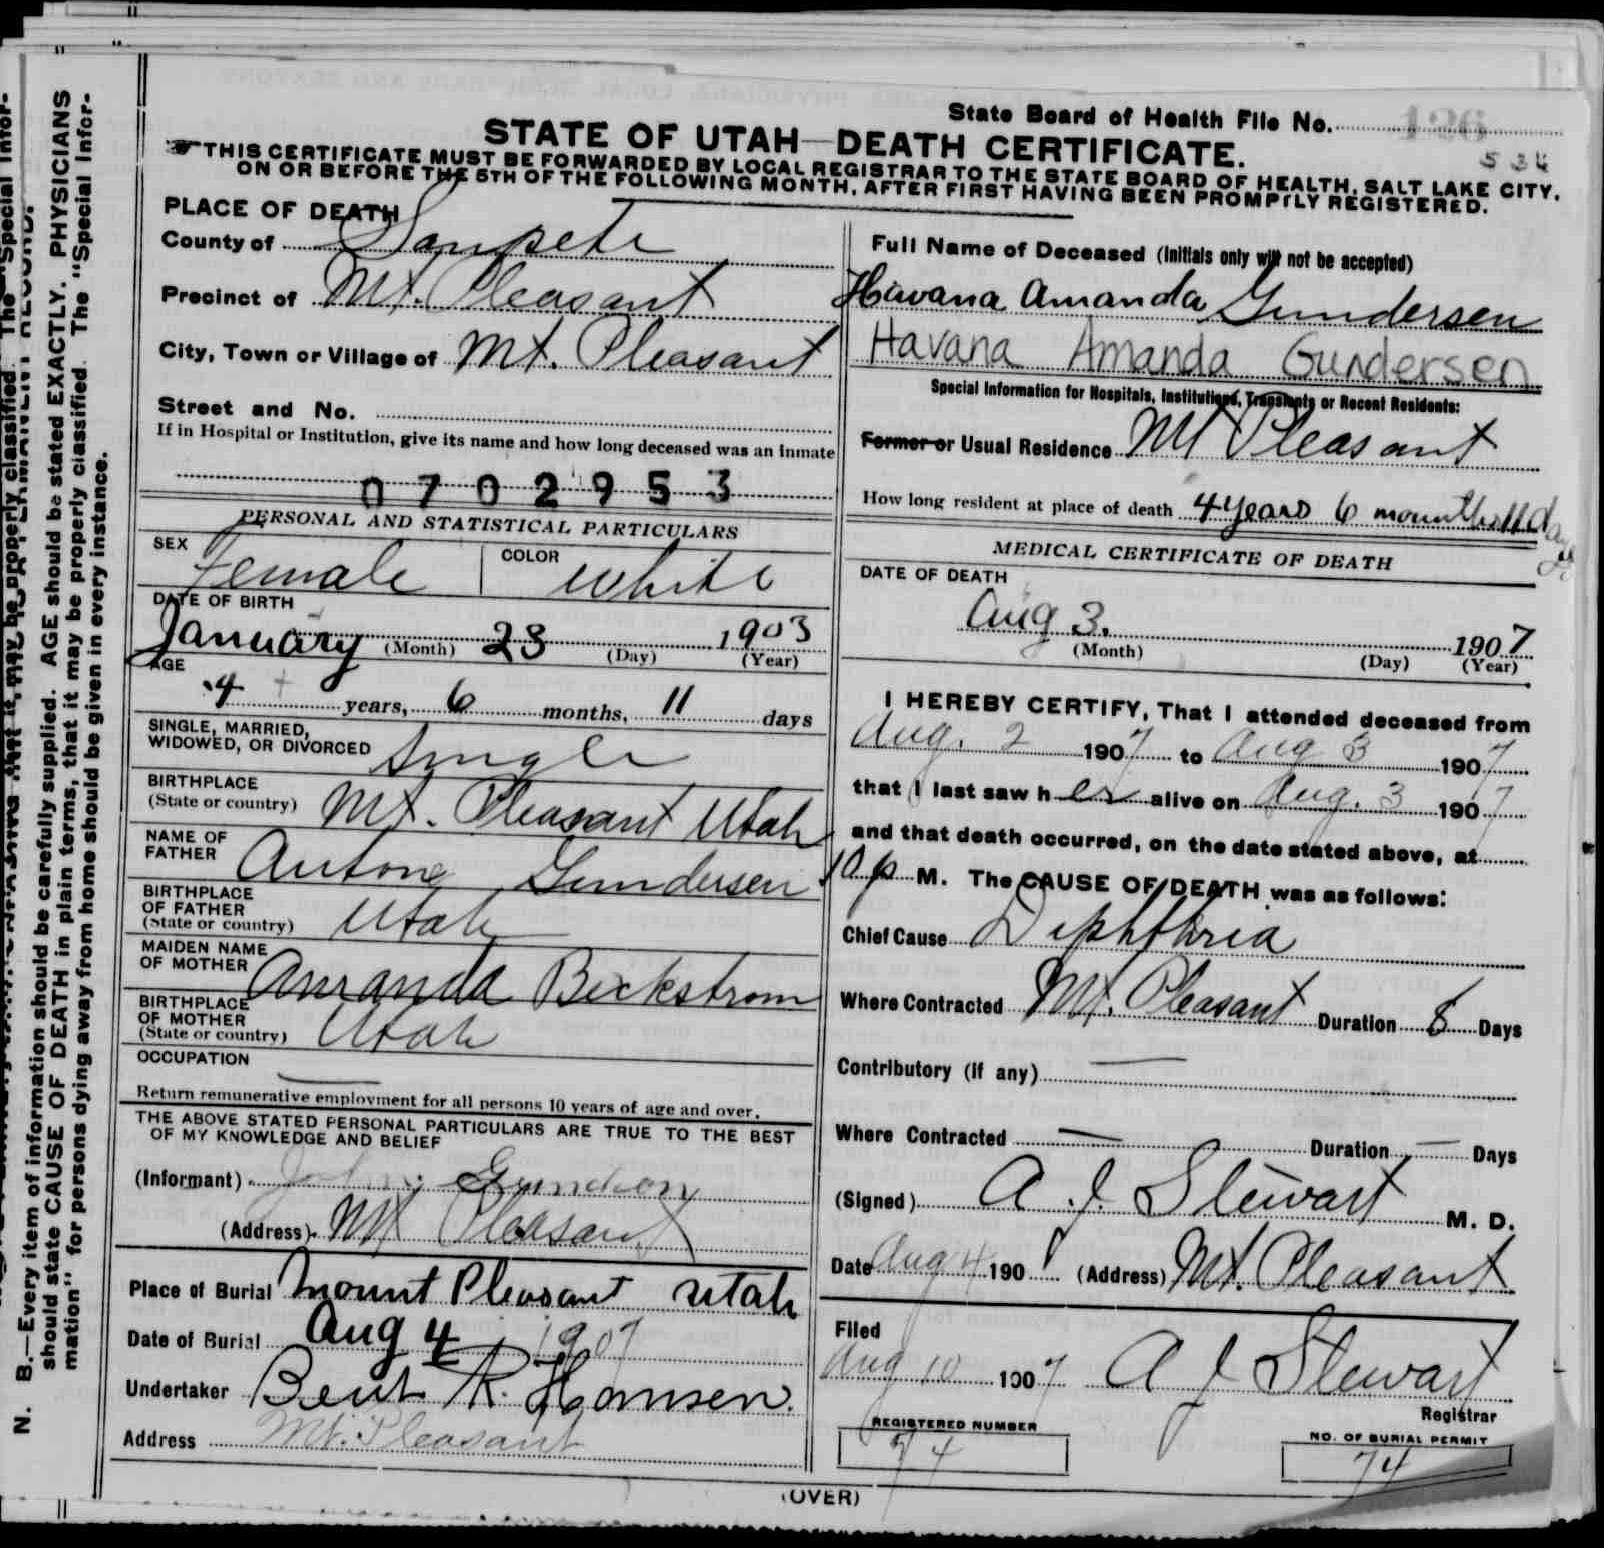 State Board of Health File No. 126
534
STATE OF UTAH—DEATH CERTIFICATE.
THIS CERTIFICATE MUST BE FORWARDED BY LOCAL REGISTRAR TO THE STATE BOARD OF HEALTH, SALT LAKE CITY,
ON OR BEFORE THE 5TH OF THE FOLLOWING MONTH, AFTER FIRST HAVING BEEN PROMPTLY REGISTERED.
PLACE OF DEATH
County of Sanpete
Precinct of Mt. Pleasant
City, Town or Village of Mt. Pleasant
Street and No.
If in Hospital or Institution, give its name and how long deceased was an inmate
0702953
PERSONAL AND STATISTICAL PARTICULARS
SEX Female COLOR white
DATE OF BIRTH
January (Month) 23 (Day) 1903 (Year)
AGE
4 years, 6 months, 11 days
SINGLE, MARRIED,
WIDOWED, OR DIVORCED Single
BIRTHPLACE
(State or country) Mt. Pleasant Utah
NAME OF
FATHER Antone Gundersen
BIRTHPLACE
OF FATHER
(State or country) Utah
MAIDEN NAME
OF MOTHER Amanda Beckstrom
BIRTHPLACE
OF MOTHER
(State or country) Utah
OCCUPATION
Return remunerative employment for all persons 10 years of age and over.
THE ABOVE STATED PERSONAL PARTICULARS ARE TRUE TO THE BEST
OF MY KNOWLEDGE AND BELIEF
(Informant)
(Address) Mt Pleasant
Place of Burial Mount Pleasant Utah
Date of Burial Aug 4 1907
Undertaker Bent R. Hansen.
Address Mt. Pleasant
Full Name of Deceased (Initials only will not be accepted)
Havana Amanda Gundersen
Havana Amanda Gundersen
Special Information for Hospitals, Institutions, Transients or Recent Residents:
Former or Usual Residence Mt Pleasant
How long resident at place of death 4 years 6 mounths 11 days
MEDICAL CERTIFICATE OF DEATH
DATE OF DEATH
Aug 3. 1907
(Month) (Day) (Year)
I HEREBY CERTIFY, That I attended deceased from
Aug. 2 1907 to Aug 3 1907
that I last saw her alive on Aug. 3 1907
and that death occurred, on the date stated above, at
10 p M. The CAUSE OF DEATH was as follows:
Chief Cause Diphthria
Where Contracted Mt. Pleasant Duration 8 Days
Contributory (if any) —
Where Contracted — Duration — Days
(Signed) A. J. Stewart M. D.
Date Aug 4 1907 (Address) Mt. Pleasant
Filed
Aug 10 1907 A J Stewart
Registrar
REGISTERED NUMBER
74
NO. OF BURIAL PERMIT
74
(OVER)
N. B.—Every item of information should be carefully supplied. AGE should be stated EXACTLY. PHYSICIANS
should state CAUSE OF DEATH in plain terms, that it may be properly classified. The "Special Infor-
mation" for persons dying away from home should be given in every instance.